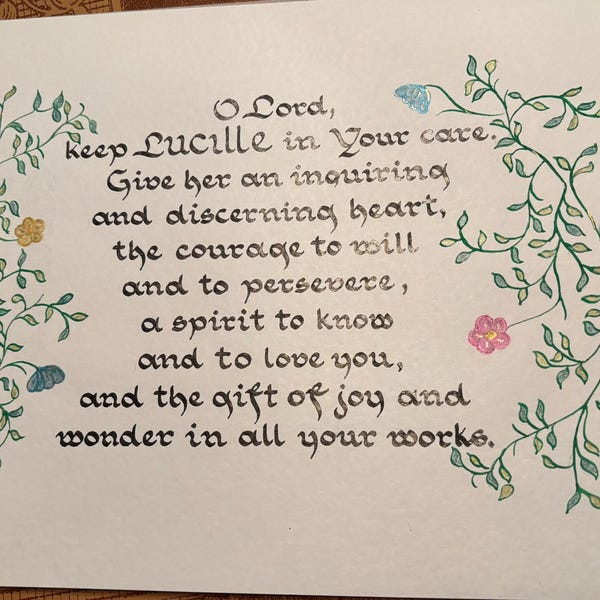 O Lord,
keep Lucille in Your care.
Give her an inquiring
and discerning heart,
the courage to will
and to persevere,
a spirit to know
and to love you,
and the gift of joy and
wonder in all your works.